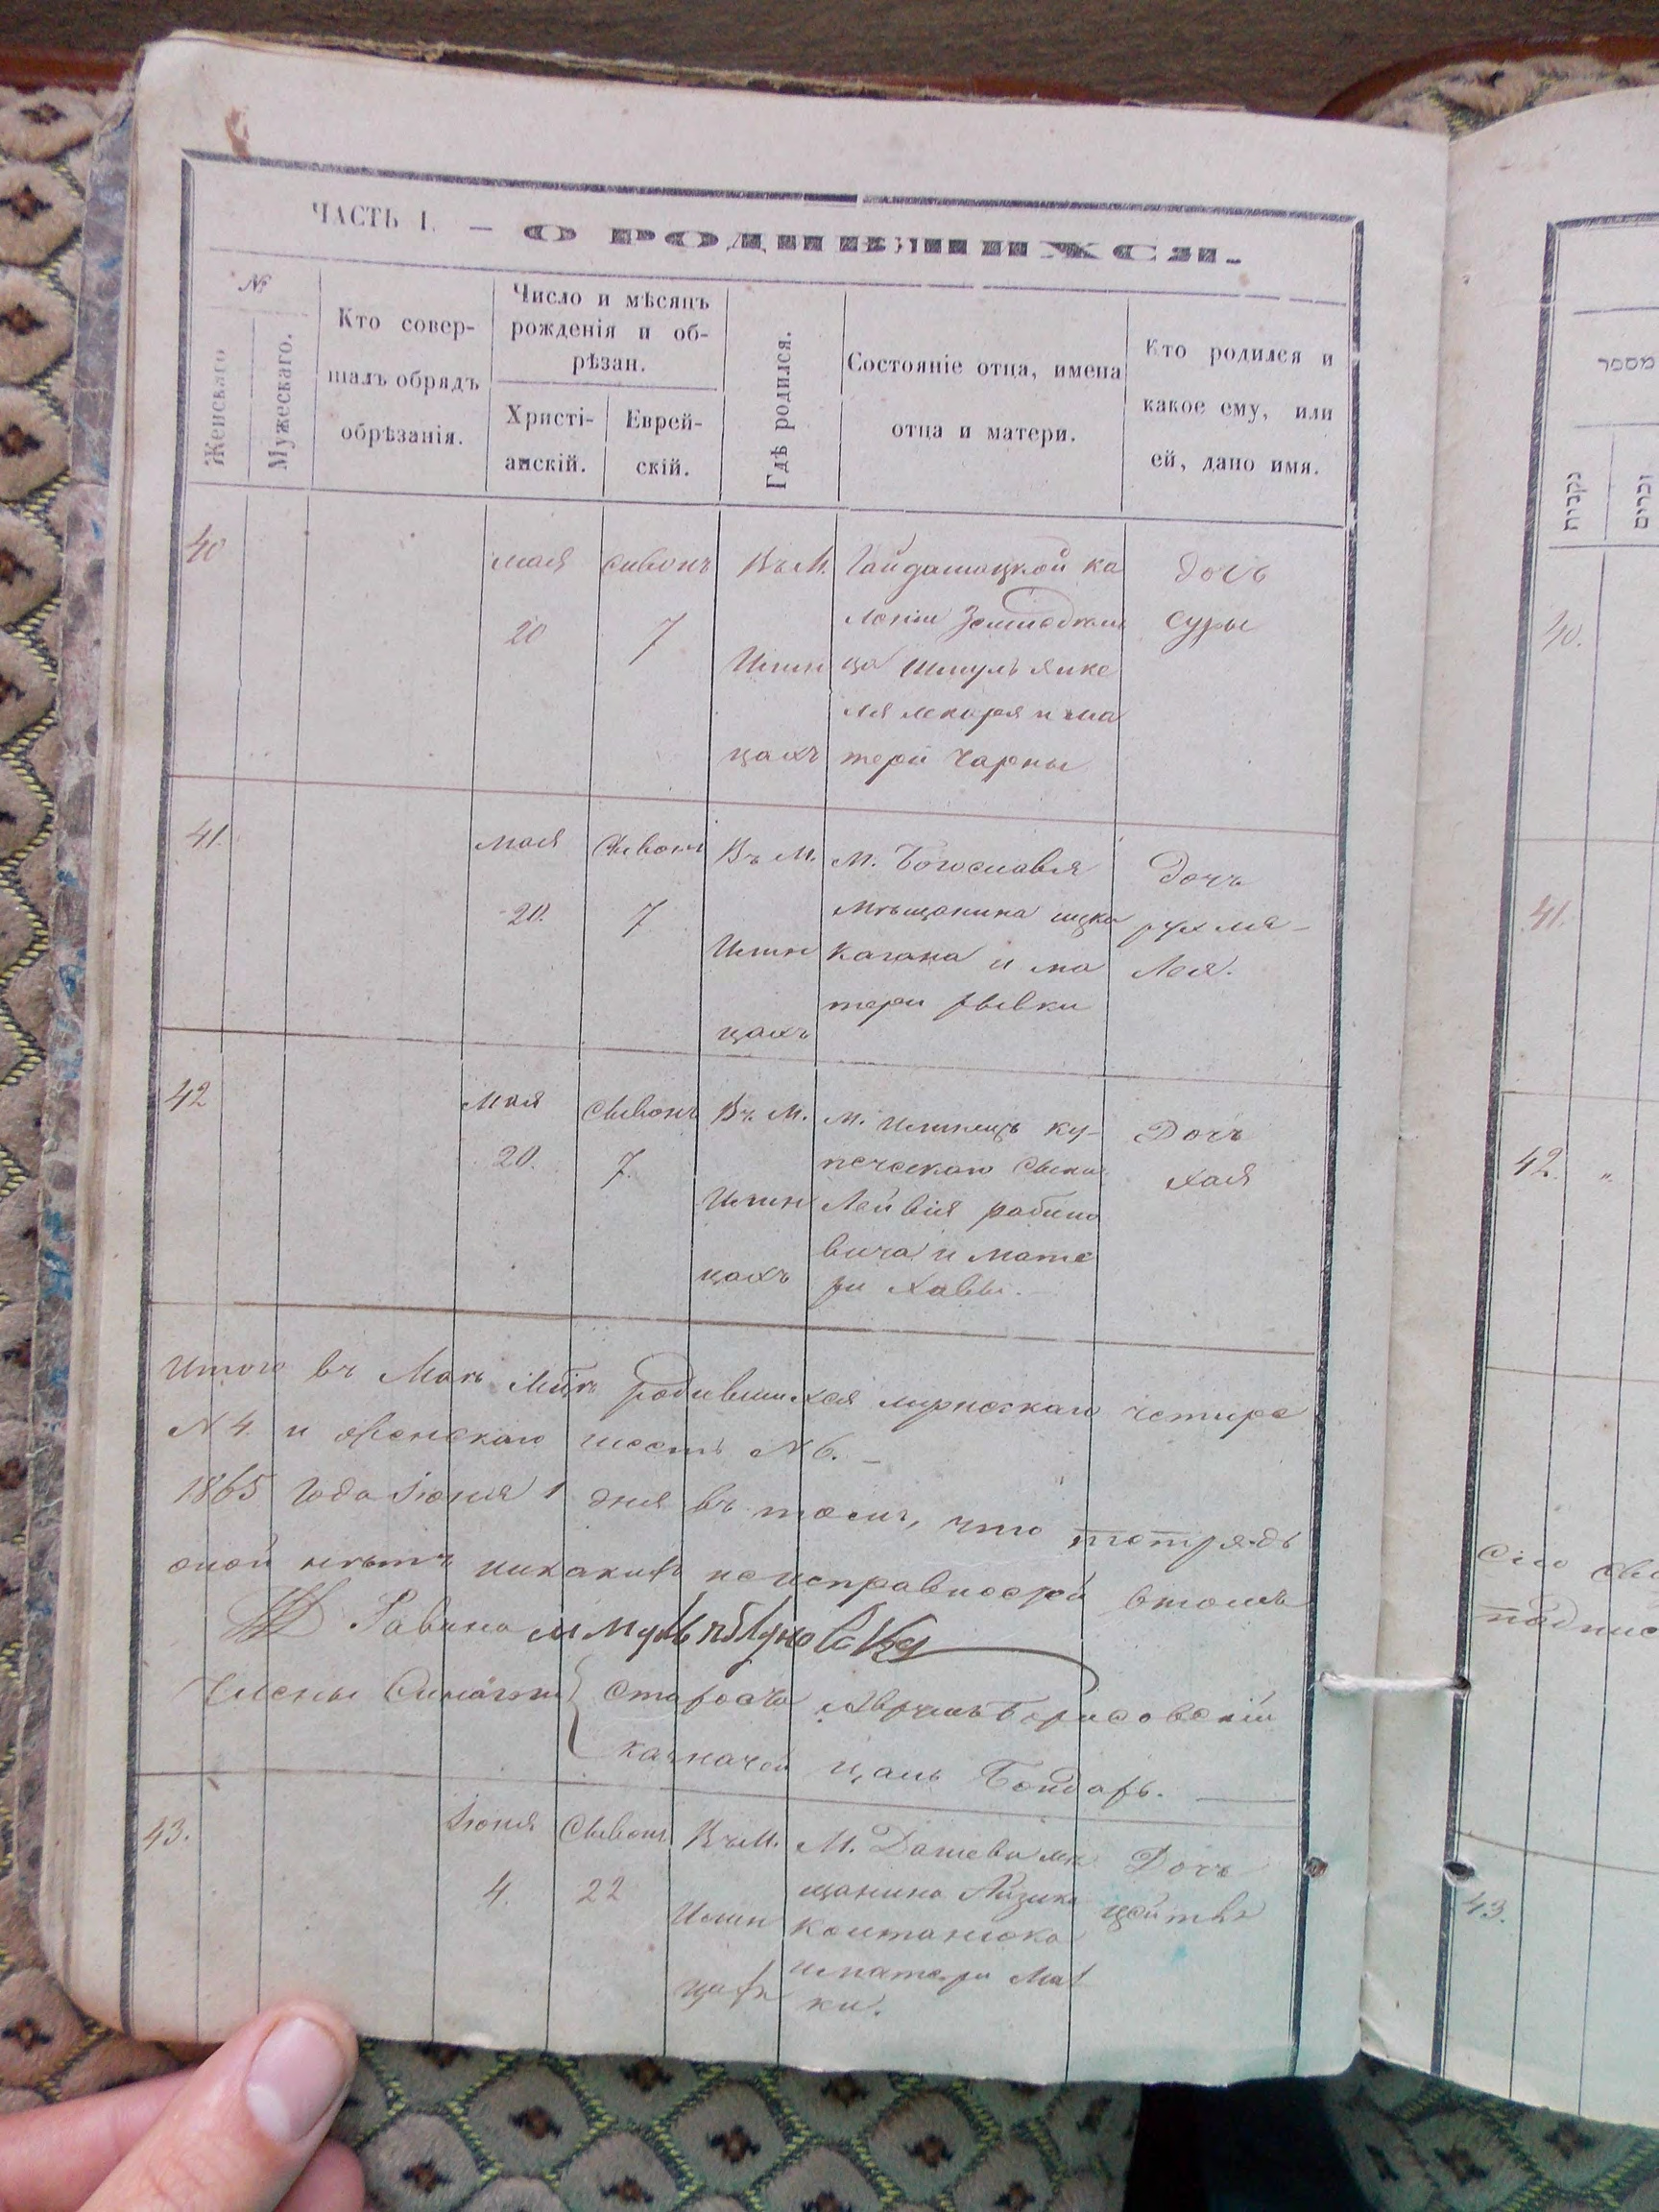 ЧАСТЬ I. — О РОДИВШИХСЯ.
№
Женскаго
Мужескаго.
Кто совер-
шалъ обрядъ
обрѣзанія.
Число и мѣсяцъ
рожденія и об-
рѣзан.
Христі-
анскій.
Еврей-
скій.
Гдѣ родился.
Состояніе отца, имена
отца и матери.
Кто родился и
какое ему, или
ей, дано имя.
40
мая
20
сивонъ
7
Въ М.
Илин
цахъ
Гайдамацкой ка
лоніи
ца Шмуль Янке
ля лекаря и ма
тери Чарны
дочь
суры
41.
мая
20.
7
Въ М.
Илин
цахъ
М. Богославля
мѣщанина ицка
Кагана и ма
тери рывки
Дочь
рухля-
Лея.
42
мая
20.
Сивонъ
7.
Въ М.
Илин
цахъ
М. Илинецъ ку-
печескаго сына
Лейвія рабино
вича и мате
ри Хавы.
Дочь
хая
Итого въ Маѣ родившихся мужескаго четире
N 4. и женскаго шесть N 6.
1865 года Іюня 1 дня въ томъ, что
оной нѣтъ никакихъ неисправностей втомъ
Равина
Члены Синагоги
староста Аврумъ Борисовскій
казначей Бондарь.
43.
Іюня
4.
22
Въ М.
Илин
цахъ
М. Дашева мѣ
щанина Айзика
и матери
ки.
Дочь
מספר
נקבות
זכרים
40.
41.
42.
43.